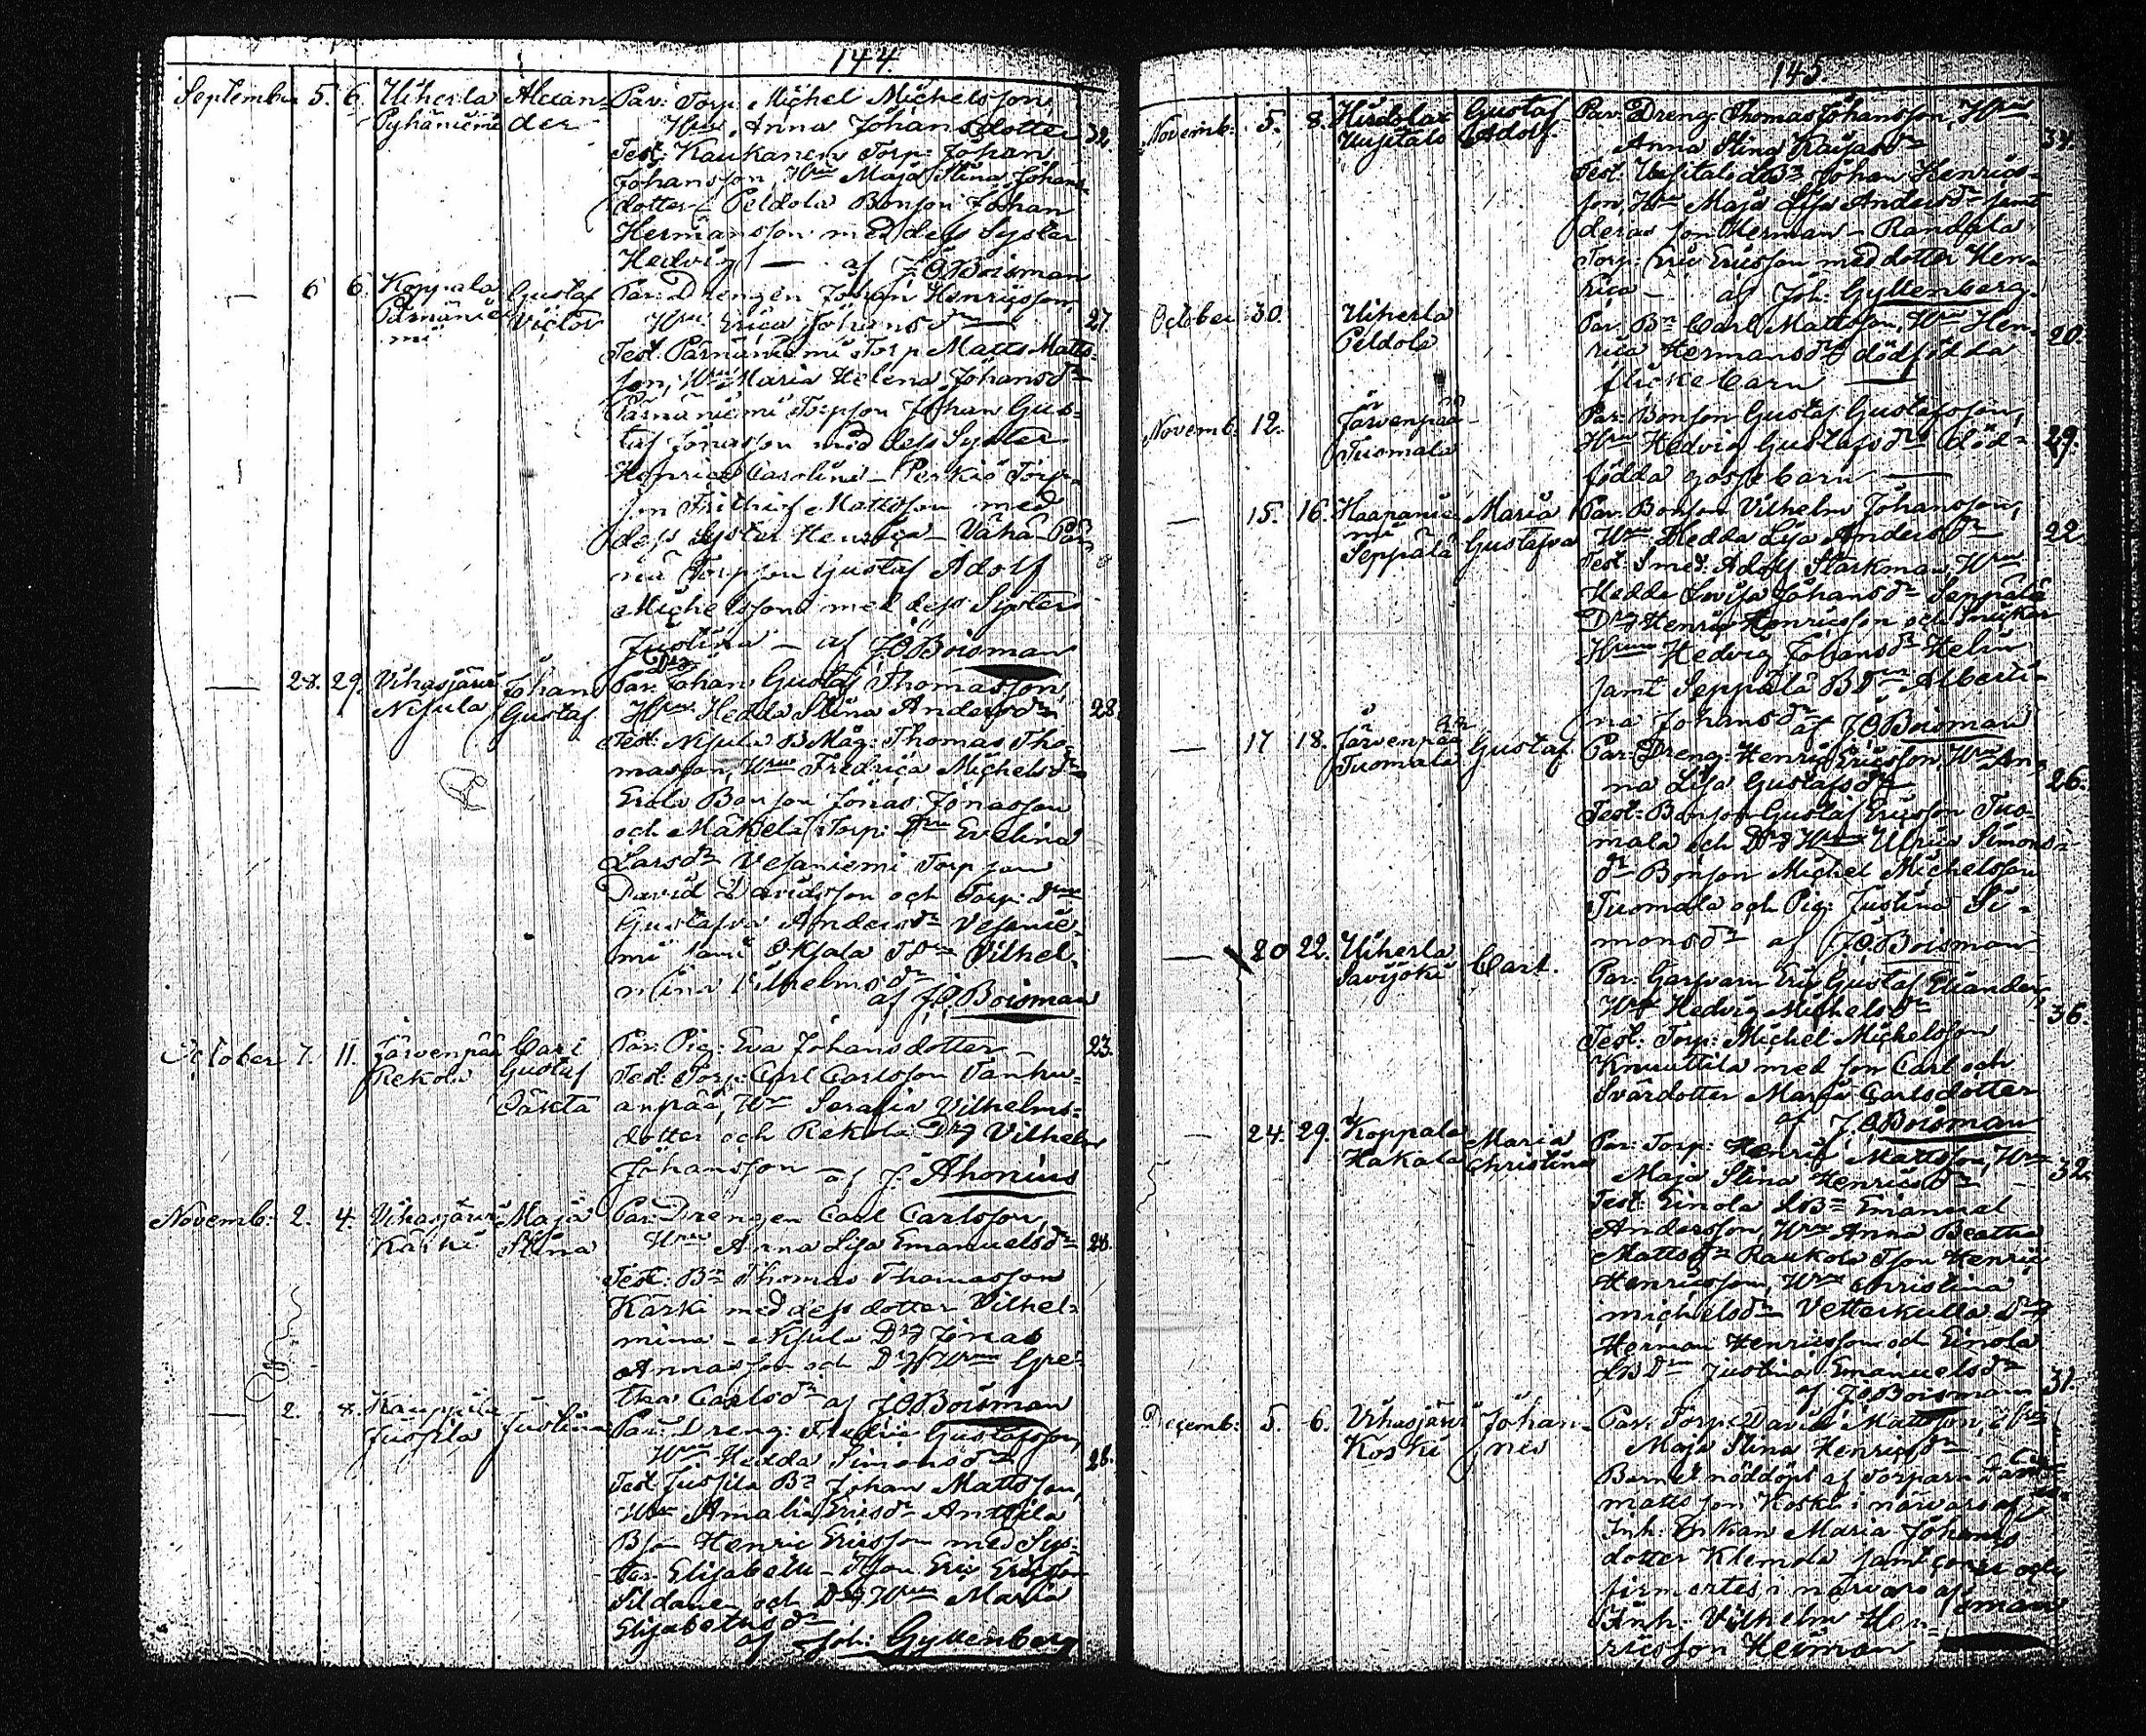 144.
September 5. 6. Uiherla Alexan- Par: Torp: Michel Michelsson,
Pyhäniemi der Hru Anna Johansdotter 32.
Test: Kaukanen Torp: Johan
Johansson, Hru Maja Stina Johans-
dotter – Peldola Bonson Johan
Hermansson med dess Syster
Hedvig — af J.O. Boisman
— 6 6. Koppala Gustaf Par: Drengen Johan Henricsson,
Pärnänie- Victor Hru Erica Johansdr — 27.
mi Test. Pärnäniemi Torp Matts Matts-
son, Hru Maria Helena Johansdr
Pärnäniemi Torpson Johan Gus-
taf Jonasson med dess Syster
Henrica Carolina – Perkiö Torp-
son Fridrich Mattsson med
dess Syster Henrica – Vähä Pär-
nä Torpson Gustaf Adolf
Michelsson med dess Syster
Justina — af J.O. Boisman
— 28. 29. Vihasjärvi Johan Par: Drg Johan Gustaf Thomasson,
Nisula Gustaf Hru Hedda Stina Andersdr 28.
Test: Nisula BMåg: Thomas Tho-
masson, Hru Fredrica Michelsdr
Erola Bonson Jonas Jonasson
och Mäkelä Torp: Dru Evelina
Larsdr Vesaniemi Torpson
David Davidsson och Torp: dru
Gustafva Andersdr Vesanie-
mi samt Vilhel-
mina Vilhelmsdr
af J.O. Boisman
October 7. 11. Järvenpää Carl Par: Pig: Eva Johansdotter — 23.
Rekola Gustaf Test: Torp: Carl Carlsson Tanhu-
Oäkta anpää, Hru Serafia Vilhelms-
dotter och Rekola Drg Vilhelm
Johansson — af J. Ahonius
Novemb: 2. 4. Vihasjärvi Maja Par: Drengen Carl Carlsson,
Kärki Stina Hru Anna Lisa Emanuelsdr 28.
Test: Bn Thomas Thomasson
Kärki med dess dotter Vilhel-
mina – Nisula Drg Jonas
Annasson och Drg Hru Gre-
tha Carlsdr af J.O. Boisman
— 2. 8. Kauppila Justina Par: Dreng: Fredric Gustafsson,
Jussila Hru Hedda Simonsdr 28.
Test Jussila Bn Johan Mattsson,
Hru Amalia Ericsdr Anttila
Bson Henric Ericsson med Sys-
ter Elisabeth – Tson Eric Ericsson
Sildanen och Drg Hru Maria
Elisabethsdr
af Joh: Gyllenberg
145.
Novemb: 5. 8. Hirdola Gustaf Par: Dreng: Thomas Johansson, Hru
Uusitalo Adolf. Anna Stina Kaisasdr 34.
Test. Uusitalo Bn Johan Henrics-
son, Hru Maja Lisa Andersdr samt
deras son Herman – Randala
Torp: Eric Ericsson med dotter Hen-
rica — af Joh: Gyllenberg.
October 30. Uiherla Par. Bn Carl Mattsson, Hru Hen-
Peldola rica Hermansdr dödfödda 20.
flickebarn —
Novemb: 12. Järvenpää Par: Bonson Gustaf Gustafsson,
Tuomala Hru Hedvig Gustafsdr död- 29.
födda gossebarn —
— 15. 16. Haapanie- Maria Par: Bonson Vilhelm Johansson,
mi Gustafva Hru Hedda Lisa Andersdr 22
Seppälä Test: Smed: Adolf Starkman, Hru
Hedda Lovisa Johansdr Seppälä
Drg Henric Henricsson och Snickar
Hrun Hedvig Johansdr Helin
samt Seppälä Bdrn Alberti-
na Johansdr af J.O. Boisman
— 17 18. Järvenpää Gustaf. Par: Dreng: Henric Ericsson, Hru An-
Tuomala na Lisa Gustafsdr 26.
Test: Bonson Gustaf Ericsson Tuo-
mala och Drg Hru Ulrica Simons-
dr Bonson Michel Michelsson
Tuomala och Pig: Justina Si-
monsdr af J.O. Boisman
— 20 22. Uiherla Carl. Par: Garfvarn Eric Gustaf Elander,
Savijoki Hru Hedvig Michelsdr 36.
Test: Torp: Michel Michelsson
Knuuttila med son Carl och
Svärdotter Maria Carlsdotter
af J.O. Boisman
— 24. 29. Koppala Maria Par: Torp: Henric Mattsson, Hru
Hakala Christina Maja Stina Henricsdr 32.
Test: Einola LBn Emanuel
Andersson, Hru Anna Beatha
Mattsdr Raukola Tson Henric
Henricsson, Hru Christina
Michelsdr Vetterkulla Drg
Herman Henricsson och Einola
LBdrn Justina Emanuelsdr
af J.O. Boisman
Decemb: 5. 6. Vihasjärvi Johan- Par: Torp: David Mattsson, Hru 31.
Koski nes Maja Stina Henricsdr
Barnet nöddöpt af Torparn David
Mattsson Koski i närvaro af
Inh: Enkan Maria Johans
dotter Klemola samt
firmertes i närvaro af
Inh: Vilhelm Hen-
ricsson Heiman